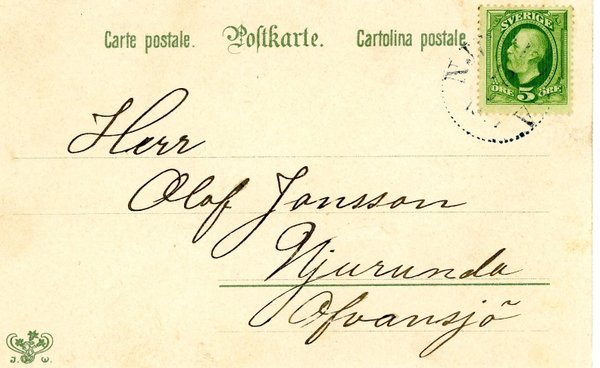 Carte postale. Postkarte. Cartolina postale
SVERIGE
ÖRE 5 ÖRE
Herr
Olof Jonsson
Njurunda
Ofvansjö
J. W.